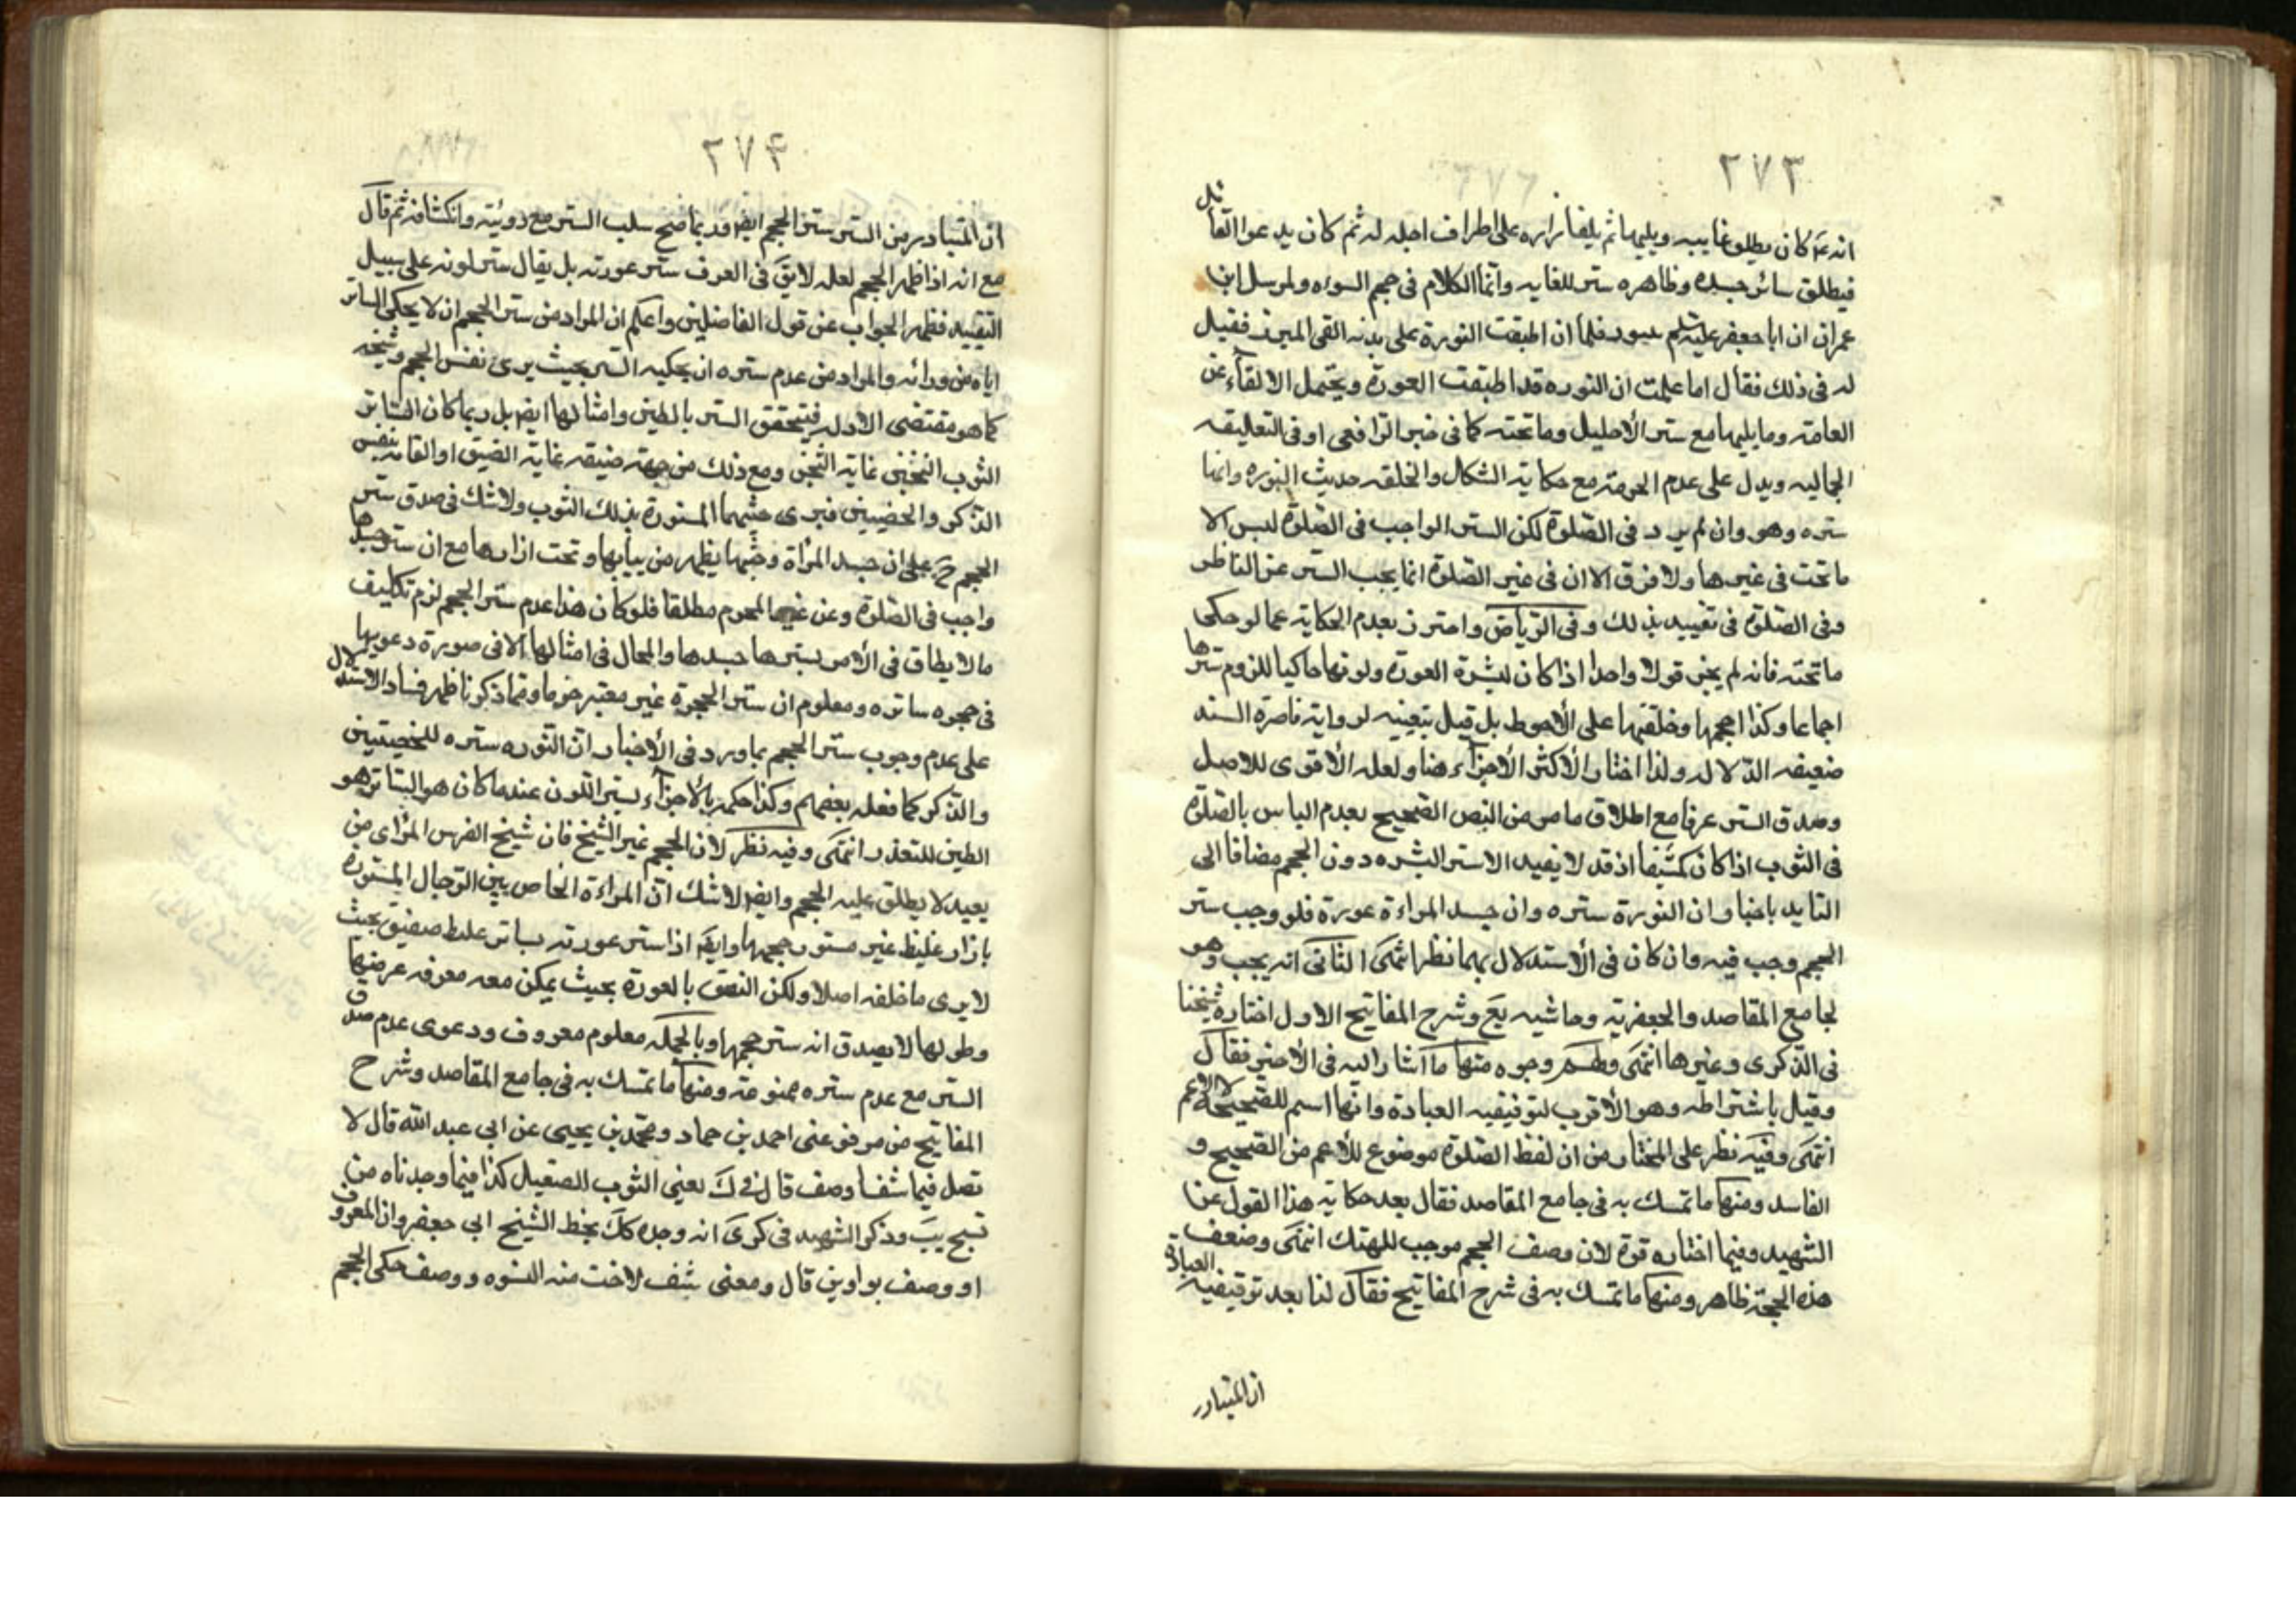 ٢٧٣
انه ع كان يطلى غايبه ويليها ثم يلف ازاره على اطراف احليله ثم كان يدعو القائل
فيطلق سائر جسده وظاهره ستر للغايه وانما الكلام فى حجم السوءه ولمرسل ابن
عمران ان ابا جعفر عليه السلام فلما ان اطبقت النورة على بدنه القى الميزر فقيل
له فى ذلك فقال اما علمت ان النوره قد اطبقت العورة ويحتمل الالقاء عن
العامة وما يليها مع ستر الأحليل وما تحته كما فى خبر الرافعى او فى التعاليقه
الجماليه ويدل على عدم الحرمة مع حكاية الشكل والخلقه حديث النوره وانها
ستره وهو وان لم يرد فى الصلوة لكن الستر الواجب فى الصلوة ليس الا
ما تحت فى غيرها ولا فرق الا ان فى غير الصلوة انما يجب الستر عن الناظر
وفى الصلوة فى تقييد بذلك وفى الرياض واحترز بعدم الحكاية عما لو حكى
ما تحته فانه لم يجز قولا واحدا اذا كان لبشرة العورة ولونها حاكيا للزوم سترها
اجماعا وكذا حجمها وخلقتها على الأحوط بل قيل بتعينه لرواية قاصرة السند
ضعيفه الدلاله ولذا اختار الأكثر الأجزاء هنا ولعله الأقوى للاصل
وصدق الستر عرفا مع اطلاق ما مر من النص الصحيح بعدم الباس بالصلوة
فى الثوب اذا كان كثيفا اذ قد لا يفيد الا ستر البشره دون الحجم مضافا الى
التايد باخبار ان النورة ستره وان جسد المراءة عورة فلو وجب ستر
الحجم وجب فيه وان كان فى الأستدلال بهما نظر انتهى الثانى انه يجب وهو
لجامع المقاصد والجعفريه وحاشيه يع وشرح المفاتيح الاول اختاره شيخنا
فى الذكرى وغيرها انتهى ولهم وجوه منها ما اشار اليه فى الأخير فقال
وقيل باشتراطه وهو الأقرب لتوقيفيه العبادة وانها اسم للصحيحة لا الاعم
انتهى وفيه نظر على المختار من ان لفظ الصلوة موضوع للأعم من الصحيح و
الفاسد ومنها ما تمسك به فى جامع المقاصد فقال بعد حكاية هذا القول عن
الشهيد وفيما اختاره قوة لان وصف الحجم موجب للهتك انتهى وضعف
هذه الحجة ظاهر ومنها ما تمسك به فى شرح المفاتيح فقال لنا بعد توقيفيه العبادة
ان المتبادر
٢٧۴
ان المتبادر من الستر ستر الحجم ايض وربما صح سلب الستر مع رويته وانكشافه ثم قال
مع انه اذا ظهر الحجم لعله لا يق فى العرف ستر عورته بل يقال ستر لونه على سبيل
التقييد فظهر الجواب عن قول الفاضلين واعلم ان المراد من ستر الحجم ان لا يحكى الساتر
اياه من ورائه والمراد من عدم ستره ان يحكيه الستر بحيث يرى نفس الحجم وشخصه
كما هو مقتضى الادله فيتحقق الستر بالطين وامثالها ايض بل ربما كان الساتر
الثوب الثخين غاية الثخن ومع ذلك من جهة ضيقه غاية الضيق او القائه بنفس
الذكر والخصيتين فيرى حجمهما المستورة بذلك الثوب ولا شك فى صدق ستر
الحجم ح على ان جسد المراة وحجمها يظهر من ثيابها وتحت ازارها مع ان ستر جسدها
واجب فى الصلوة وعن غير المحرم مطلقا فلو كان هذا عدم ستر الحجم لزم تكليف
ما لا يطاق فى الأمر بسترها جسدها والمحال فى امثالها الا فى صورة دخولها
فى حجره ساتره ومعلوم ان ستر الحجرة غير معتبر جزما ومما ذكرنا ظهر فساد الاستدلال
على عدم وجوب ستر الحجم بما ورد فى الأخبار ان النوره ستره للخصيتين
والذكر كما فعله بعضهم وكذا حكمه بالأجزاء بستر اللون عندما كان هو الساتر هو
الطين للتعذر انتهى وفيه نظر لان الحجم غير الشبح فان شبح الفرس المرئى من
بعيد لا يطلق عليه الحجم وايض لا شك ان المراءة الخاص بين الرجال المستوره
بازار غليظ غير مستور حجمها وايض اذا ستر عورته بساتر غليظ صفيق بحيث
لا يرى ما خلفه اصلا ولكن التصق بالعورة بحيث يمكن معه معرفه عرضها
وطولها لا يصدق انه ستر حجمها وبالجمله معلوم معروف ودعوى عدم صدق
الستر مع عدم ستره ممنوعة ومنها ما تمسك به فى جامع المقاصد وشرح
المفاتيح من مرفوعتى احمد بن حماد ومحمد بن يحيى عن ابى عبد الله قال لا
تصل فيما شف او صف قال فى ك يعنى الثوب الصقيل كذا فيما وجدناه من
نسخ يب وذكر الشهيد فى كرى انه وجده كك بخط الشيخ ابى جعفر وان المعروف
او وصف بواوين قال ومعنى شف لاحت منه البشره ووصف حكى الحجم